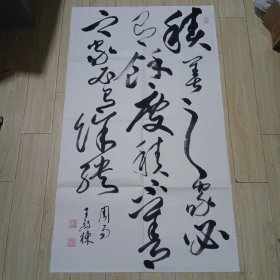 積善之家必
有餘慶積不善
之家必有餘殃
周易
王棟